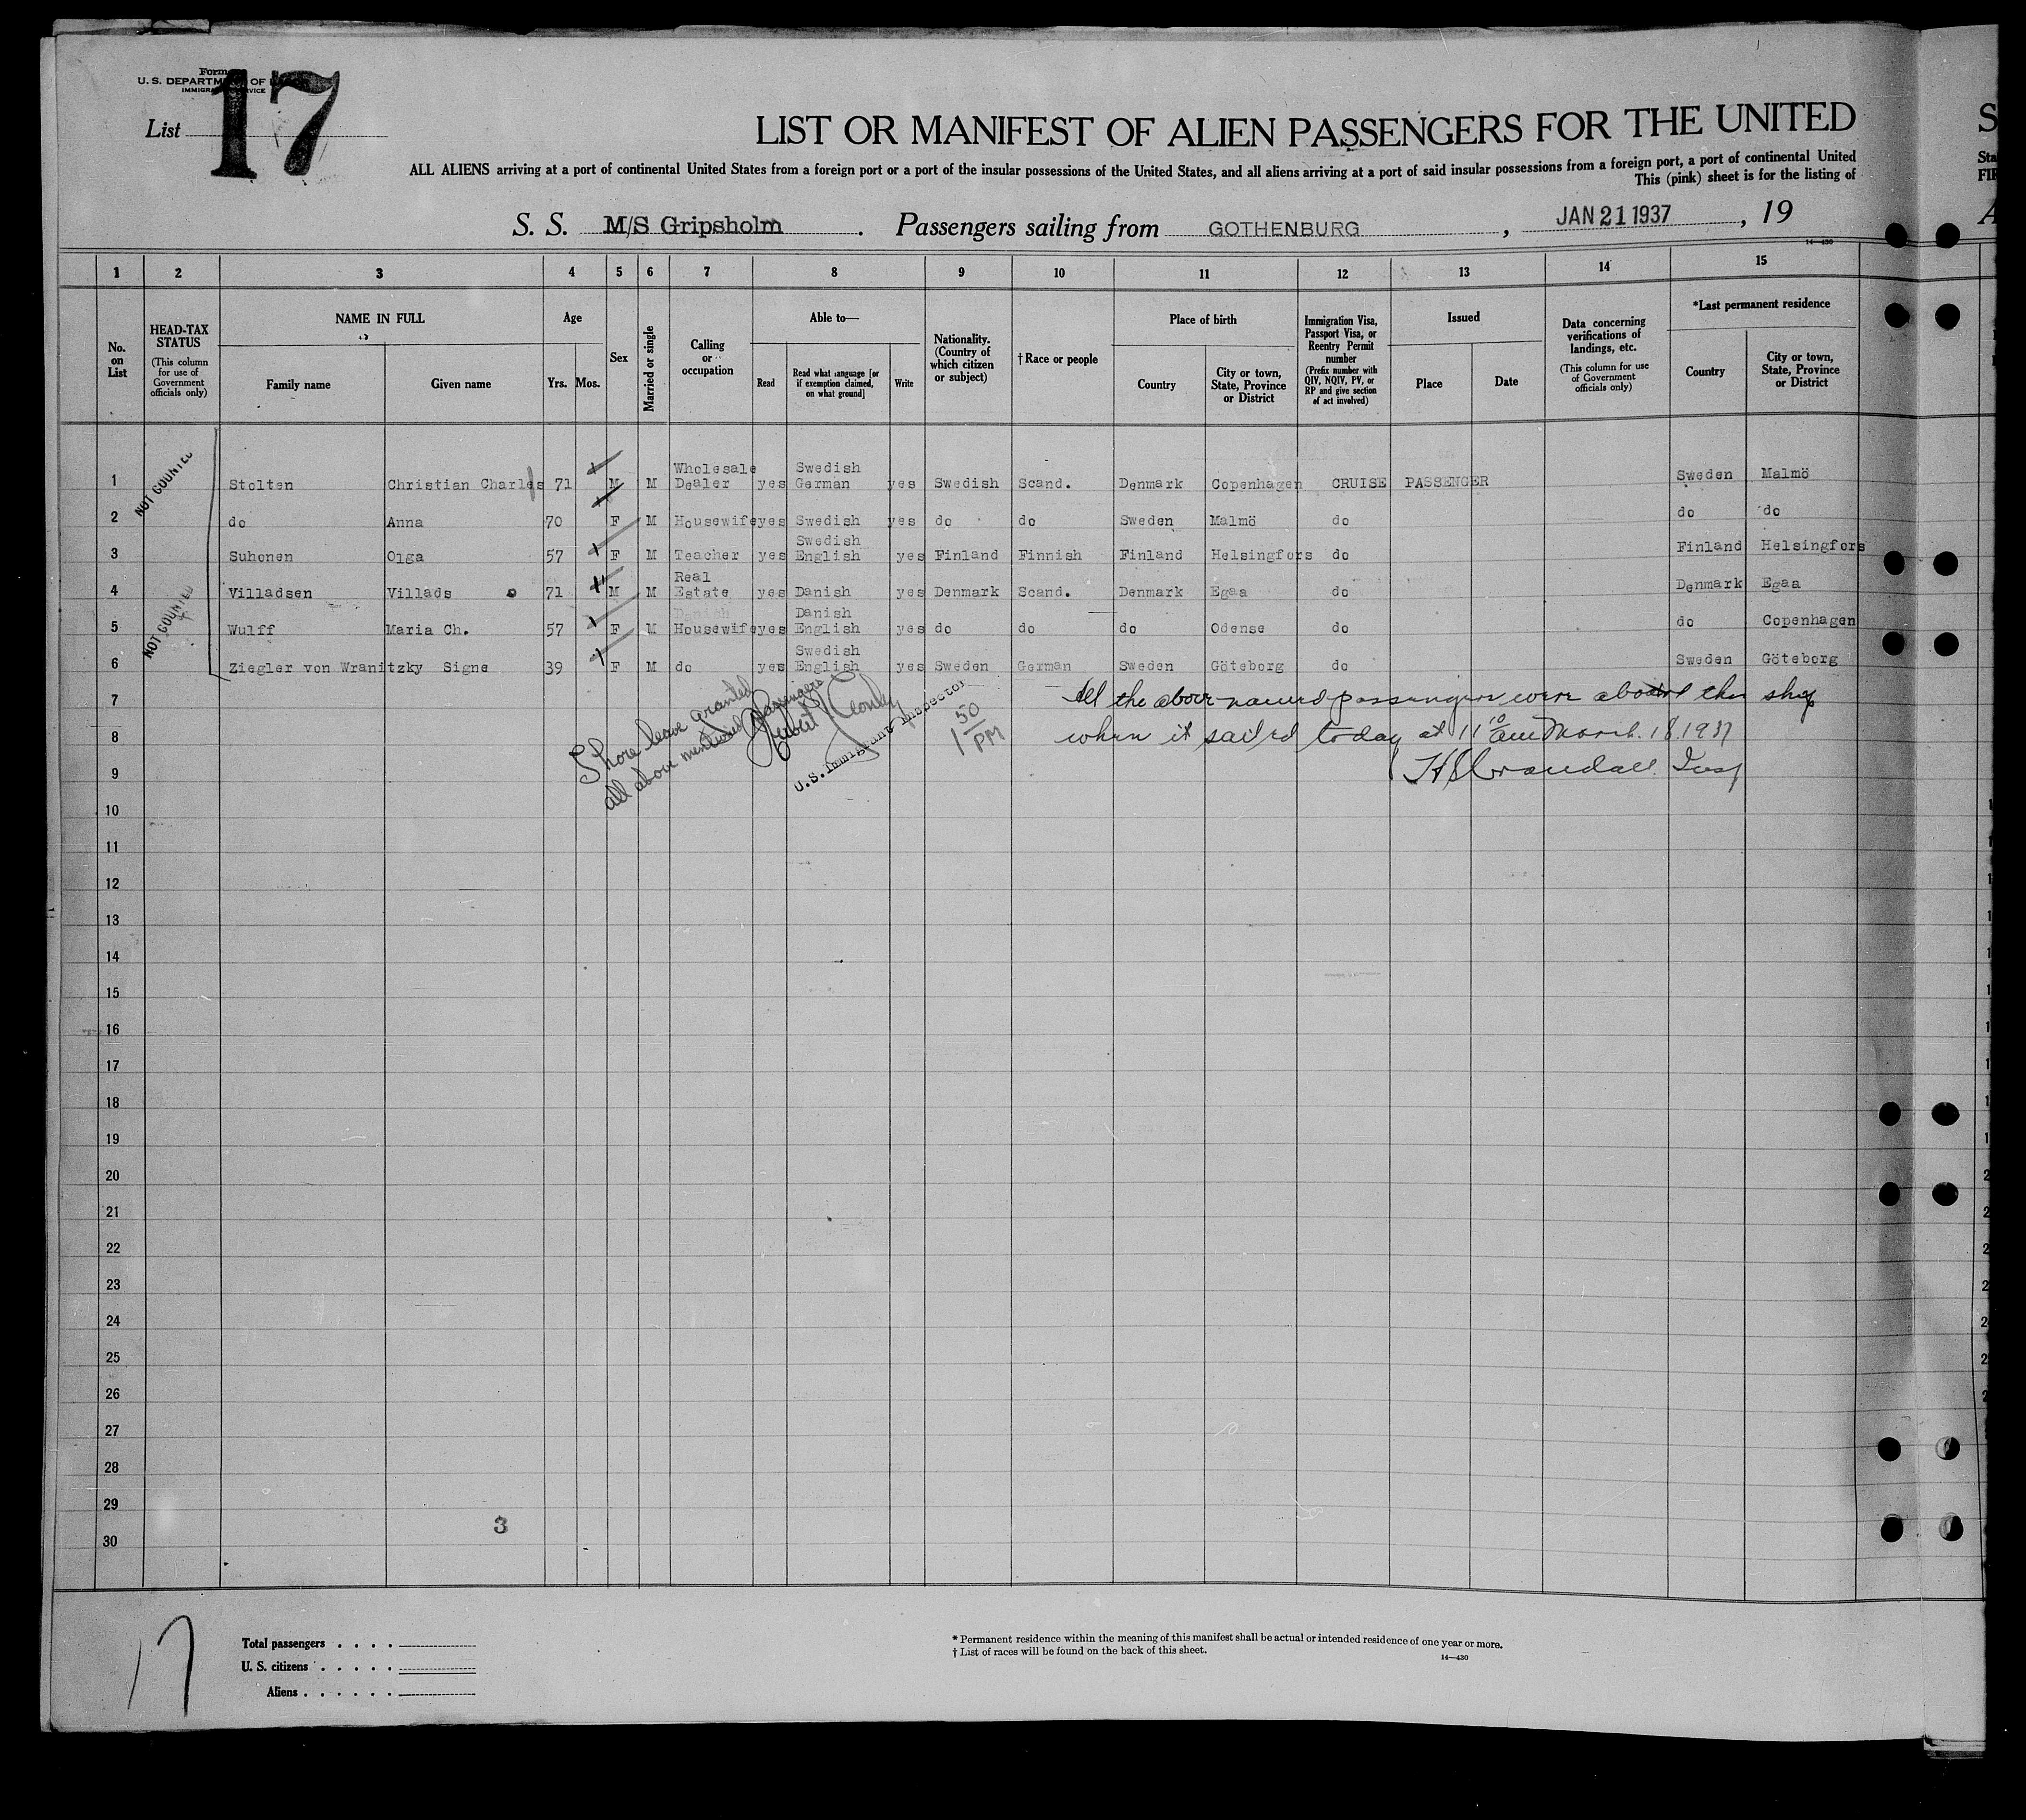 Form
U. S. DEPARTM OF
IMMIGRA VICE
List 17
LIST OR MANIFEST OF ALIEN PASSENGERS FOR THE UNITED
ALL ALIENS arriving at a port of continental United States from a foreign port or a port of the insular possessions of the United States, and all aliens arriving at a port of said insular possessions from a foreign port, a port of continental United
This (pink) sheet is for the listing of
S. S. M/S Gripsholm . Passengers sailing from GOTHENBURG , JAN 21 1937 , 19
14—430
1 2 3 4 5 6 7 8 9 10 11 12 13 14 15
No. on List
HEAD-TAX STATUS (This column for use of Government officials only)
NAME IN FULL Family name Given name
Age Yrs. Mos.
Sex
Married or single
Calling or occupation
Able to— Read Read what language [or if exemption claimed, on what ground] Write
Nationality. (Country of which citizen or subject)
† Race or people
Place of birth Country City or town, State, Province or District
Immigration Visa, Passport Visa, or Reentry Permit number (Prefix number with QIV, NQIV, PV, or RP and give section of act involved)
Issued Place Date
Data concerning verifications of landings, etc. (This column for use of Government officials only)
*Last permanent residence Country City or town, State, Province or District
NOT COUNTED
1 Stolten Christian Charles 71 M M Wholesale Dealer yes Swedish German yes Swedish Scand. Denmark Copenhagen CRUISE PASSENGER Sweden Malmö
2 do Anna 70 F M Housewife yes Swedish yes do do Sweden Malmö do do do
3 Suhonen Olga 57 F M Teacher yes Swedish English yes Finland Finnish Finland Helsingfors do Finland Helsingfors
NOT COUNTED
4 Villadsen Villads 71 M M Real Estate yes Danish yes Denmark Scand. Denmark Egaa do Denmark Egaa
5 Wulff Maria Ch. 57 F M Housewife yes Danish English yes do do do Odense do do Copenhagen
6 Ziegler von Wranitzky Signe 39 F M do yes Swedish English yes Sweden German Sweden Göteborg do Sweden Göteborg
7
8
9
Shore leave granted
all above mentioned passengers
U.S. Immigrant Inspector
1 50 PM
All the above named passengers were aboard the ship
when it sailed today at 11 10 am March 18 1937
H S Crandall Insp
10
11
12
13
14
15
16
17
18
19
20
21
22
23
24
25
26
27
28
29
30
3
17
Total passengers . . . .
U. S. citizens . . . . .
Aliens . . . . . .
* Permanent residence within the meaning of this manifest shall be actual or intended residence of one year or more.
† List of races will be found on the back of this sheet.
14—430
S
Sta
FIR
A